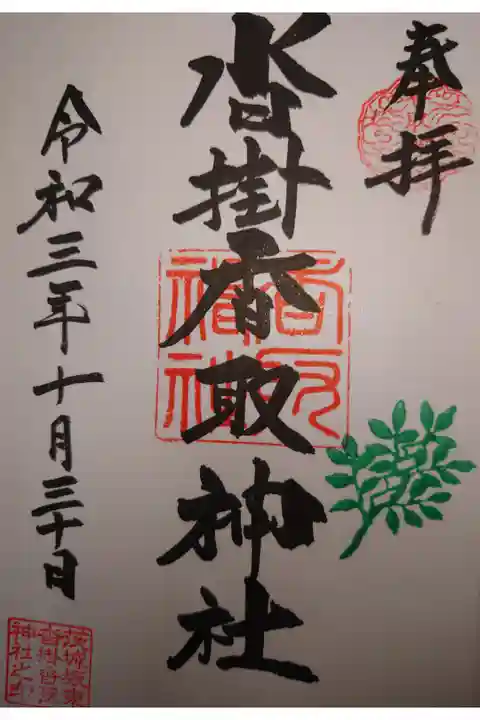 奉拝
沓掛香取神社
令和三年十月三十日